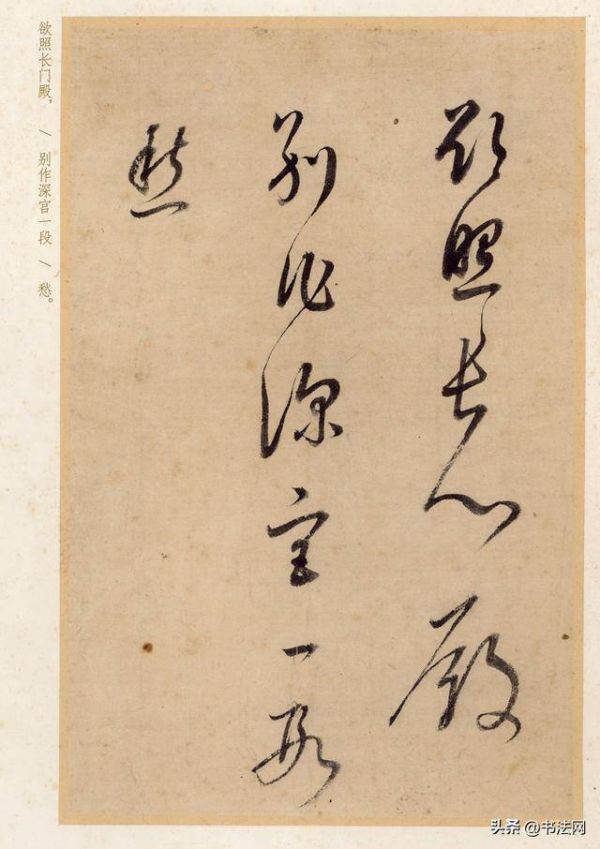 欲照長門殿
別作深宮一段
愁
欲照长门殿，\ 别作深宫一段 \ 愁。
头条 @书法网